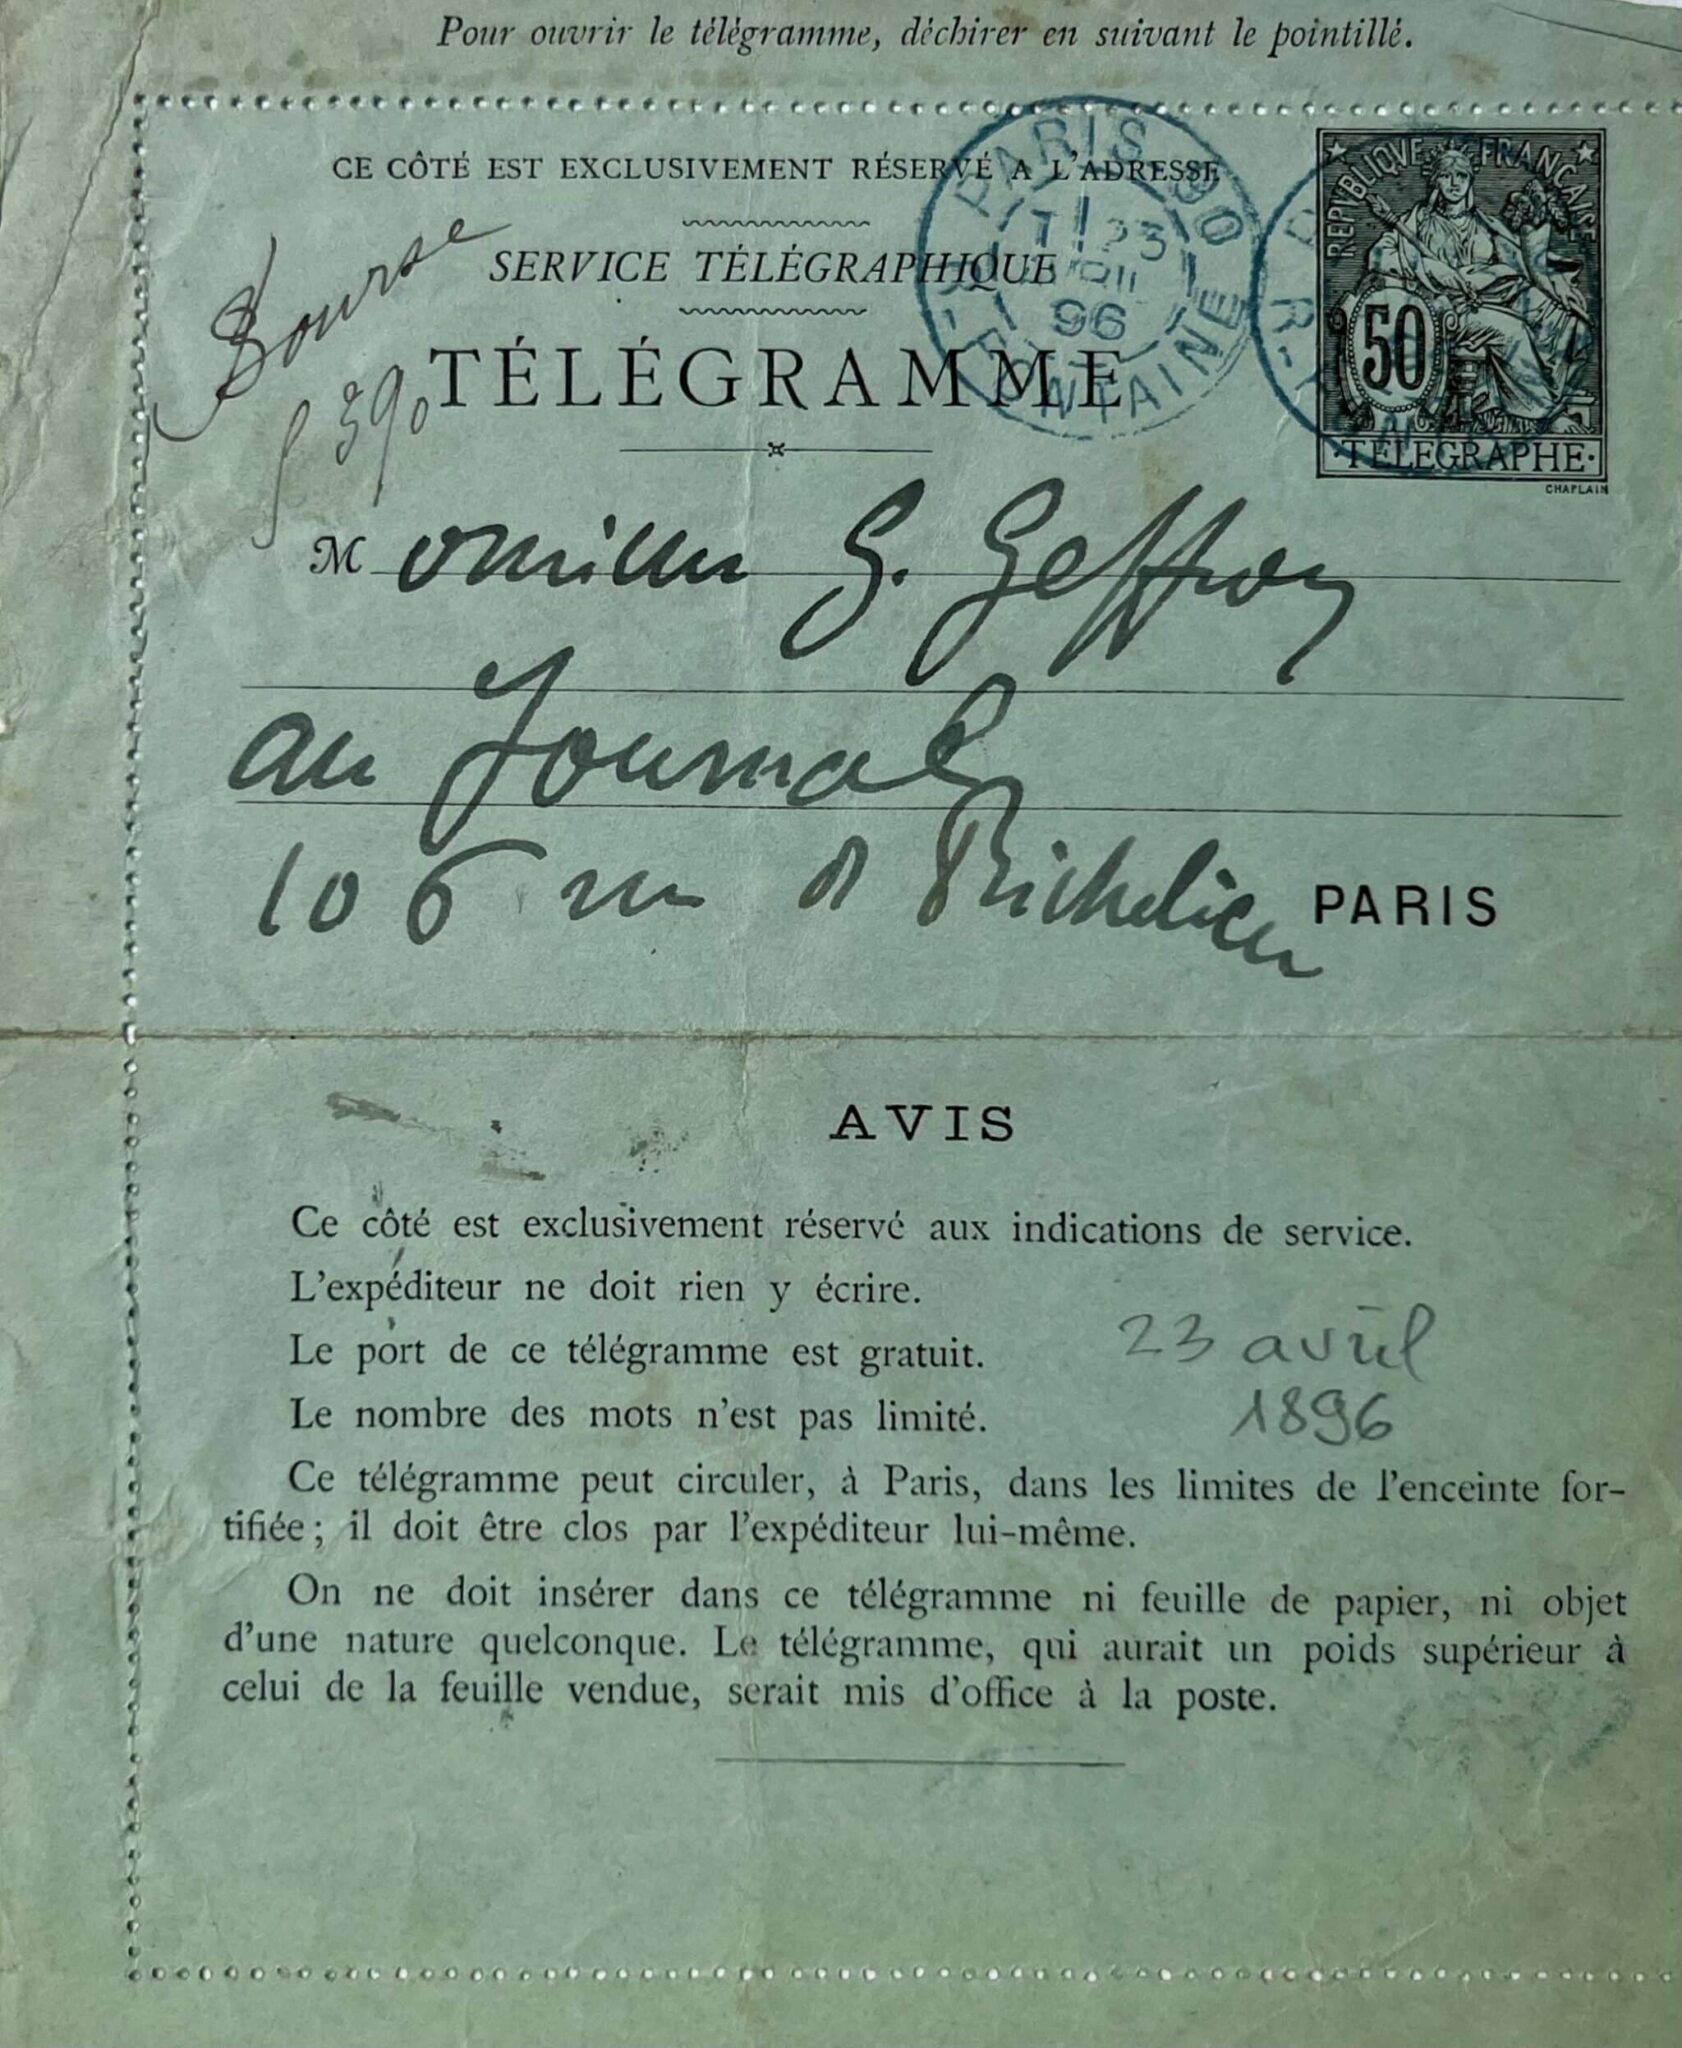 Pour ouvrir le télégramme, déchirer en suivant le pointillé.
CE CÔTÉ EST EXCLUSIVEMENT RÉSERVÉ A L'ADRESSE
SERVICE TÉLÉGRAPHIQUE
TÉLÉGRAMME
Bourse
390
PARIS 90
23
96
FONTAINE
REPVBLIQVE FRANÇAISE
50
·TÉLÉGRAPHE·
CHAPLAIN
Monsieur G. Geffroy
au Journal
106 rue de Richelieu PARIS
AVIS
Ce côté est exclusivement réservé aux indications de service.
L'expéditeur ne doit rien y écrire.
Le port de ce télégramme est gratuit.
Le nombre des mots n'est pas limité.
23 avril
1896
Ce télégramme peut circuler, à Paris, dans les limites de l'enceinte for-
tifiée; il doit être clos par l'expéditeur lui-même.
On ne doit insérer dans ce télégramme ni feuille de papier, ni objet
d'une nature quelconque. Le télégramme, qui aurait un poids supérieur à
celui de la feuille vendue, serait mis d'office à la poste.